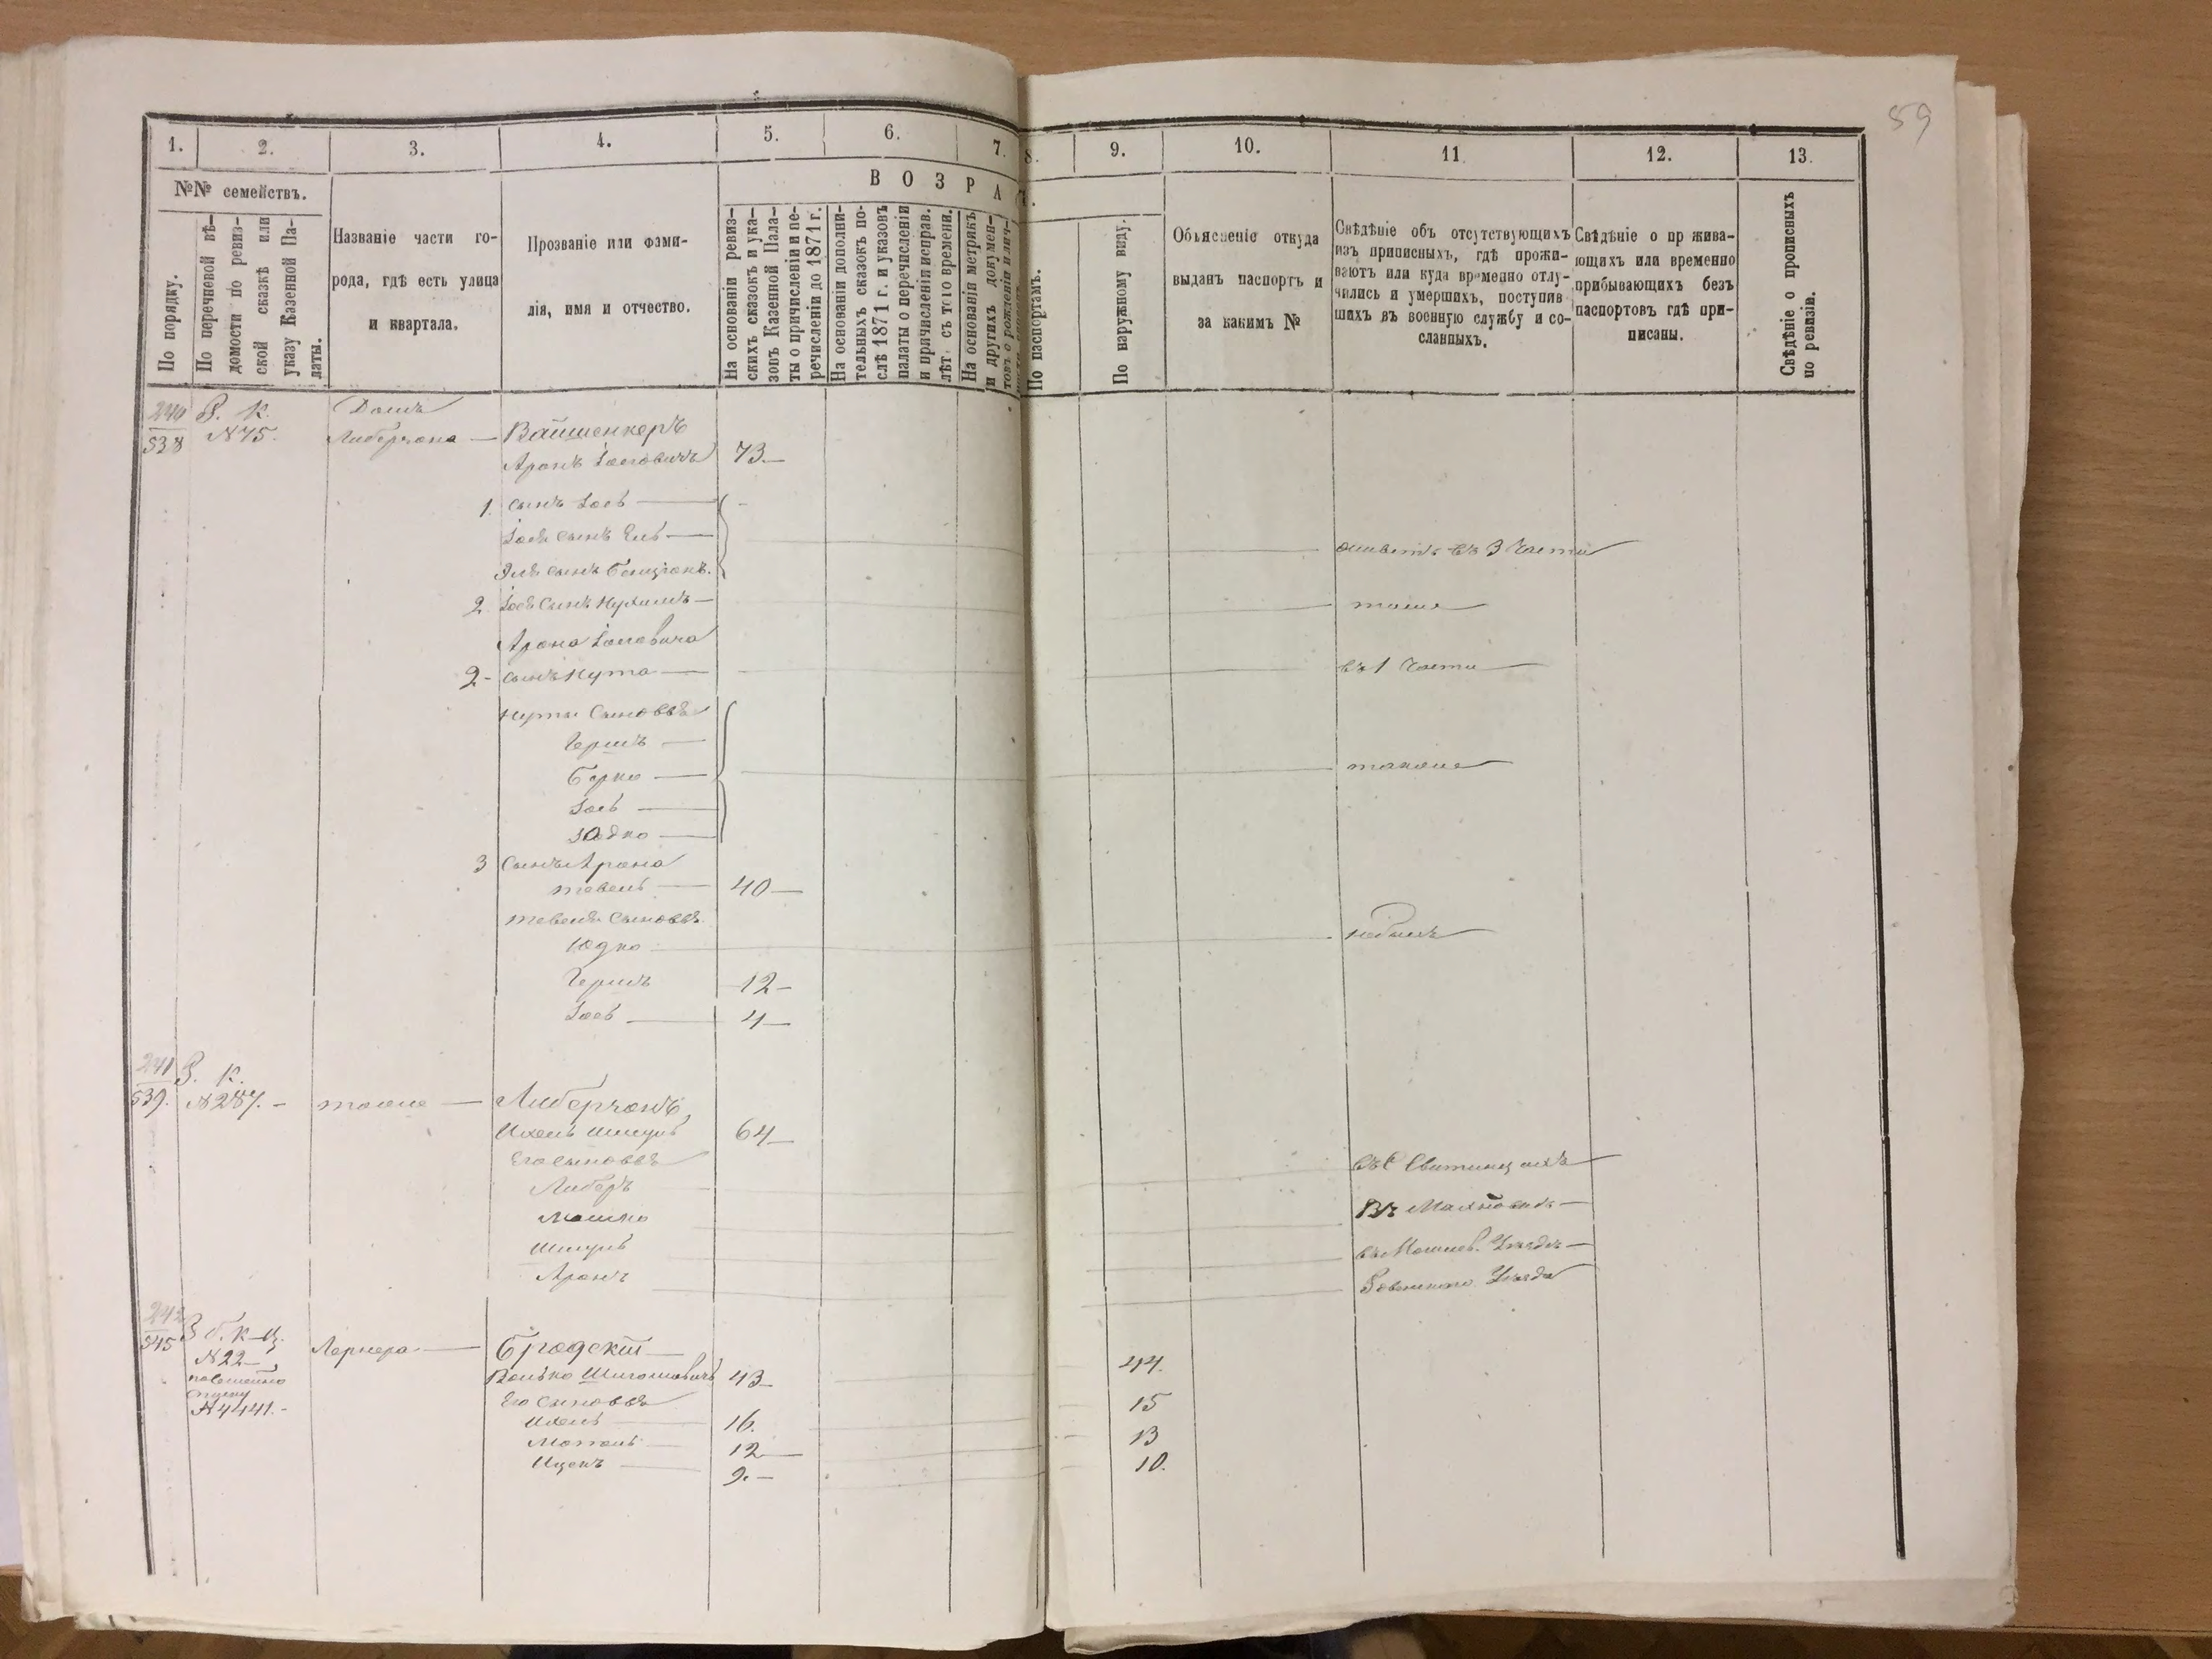 59
1.
2.
3.
4.
5.
6.
7.
8.
9.
10.
11.
12.
13.
№№ семействъ.
ВОЗРА
Т.
По порядку.
По перечневой вѣ-
домости по ревиз-
ской сказкѣ или
указу Казенной Па-
латы.
Названіе части го-
рода, гдѣ есть улица
и квартала.
Прозваніе или фами-
лія, имя и отчество.
На основаніи ревиз-
скихъ сказокъ и ука-
зовъ Казенной Пала-
ты о причисленіи и пе-
речисленіи до 1871 г.
На основаніи дополни-
тельныхъ сказокъ по-
слѣ 1871 г. и указовъ
палаты о перечисленіи
и причисленія исправ.
лѣт. съ того времени.
На основаніи метрикъ
и другихъ докумен-
товъ о рожденіи и лич-
По паспортамъ.
По наружному виду.
Объясненіе откуда
выданъ паспортъ и
за какимъ №
Свѣдѣніе объ отсутствующихъ
изъ приписныхъ, гдѣ прожи-
ваютъ или куда временно отлу-
чились и умершихъ, поступив
шихъ въ военную службу и со-
сланныхъ.
Свѣдѣніе о пр жива-
ющихъ или временно
прибывающихъ безъ
паспортовъ гдѣ при-
писаны.
Свѣдѣніе о прописныхъ
по ревизіи.
240
538
Р. К.
N 75.
Домъ
Либерзона — Вайшенкеръ
Аронъ Іосіовичъ 73 —
1. сынъ Іось —
Іося сынъ Эль —
живетъ въ 3 части
Эля сынъ Бенціонъ.
2 Іося Сынъ Нухимъ — тоже
Арона Іосіовича
2 - сынъ Нута — въ 1 части
Нуты Сыновья
Гершъ —
Берко — также
Іось —
Юдко —
3 Сынъ Арона
Тевель — 40 —
Тевеля Сыновья
Юдко
Гершъ 12 —
Іось — 4 —
241
539.
Р. К.
N 287. - тоже — Либерзонъ,
Ихель Шмуль 64 —
Его сыновья
Либеръ
Мошко
Шмуль
Аронъ
242
545
N 22
N 4441. -
Лернера — Бродскій —
Волько 43 — 44.
Его сыновья
Ихель — 16. 15
Мотель — 12 — 13
Ицекъ — 9. — 10.